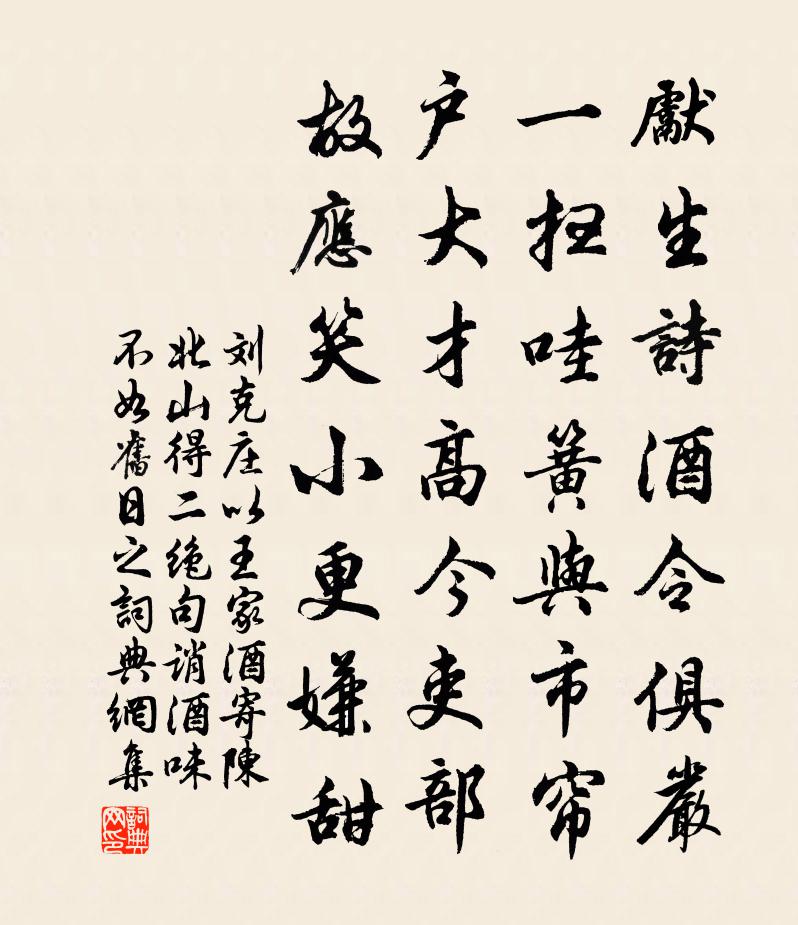 獻生詩酒令俱嚴
一扫哇簧與市帘
户大才高今吏部
故應笑小更嫌甜
刘克庄以王家酒寄陳
北山得二绝句誚酒味
不如舊日之詞典網集
詞典网印